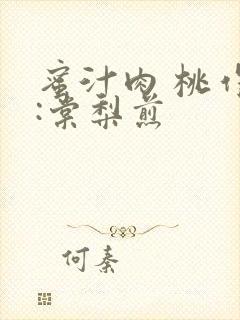 蜜汁肉桃作
:棠梨煎
何秦